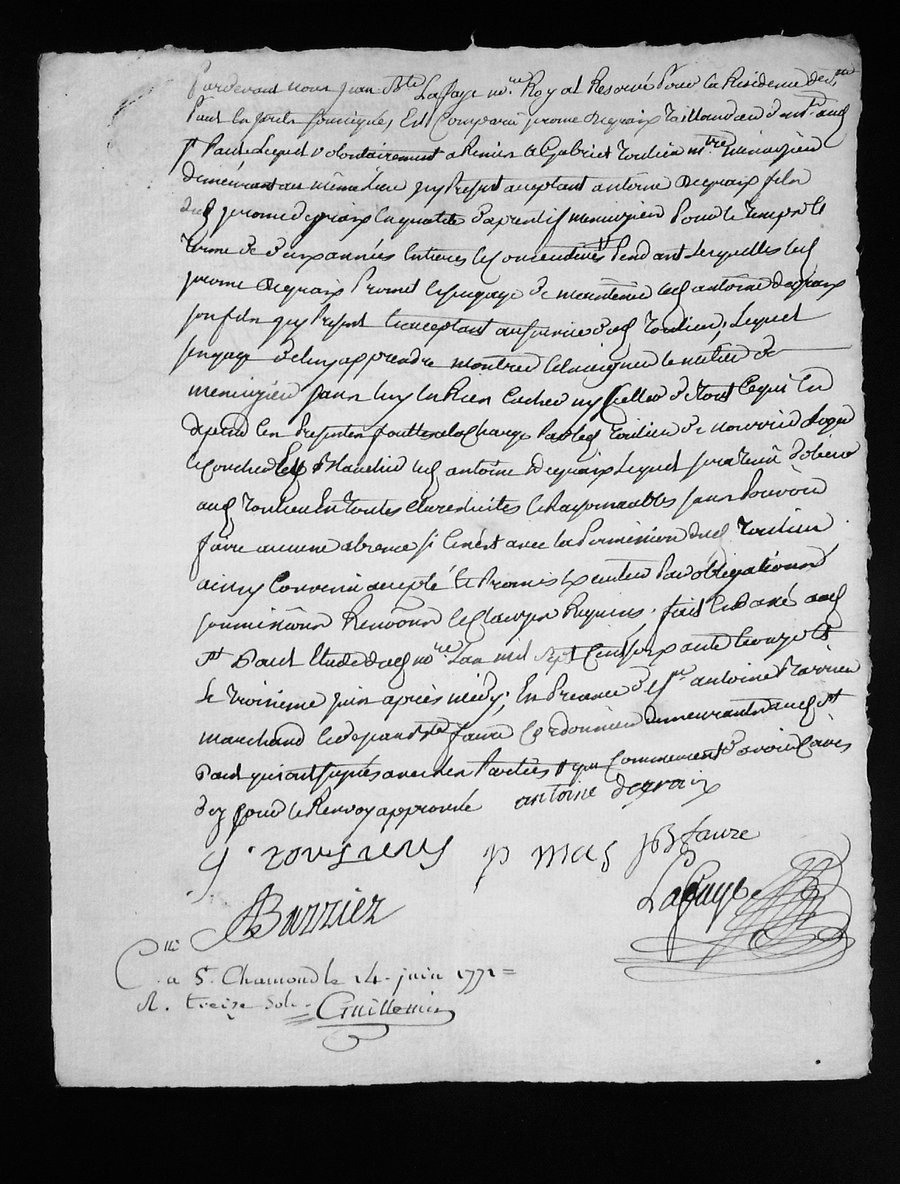 Pardevant nous Jean Bte Lafaye nre Royal Reservé Pour la Residence de st
Paul en jarets soussignés Est Comparu jerome degraix taillandier dud
st Paul Lequel volontairement a Remis a Gabriel Toulieu mtre menuizier
demeurant au même lieu icy Present acceptant antoine degraix fils
dud jerome degraix en qualité d'aprentif menuizier Pour le temps et
terme de deux années Entieres et Consecutives Pendant Lesquelles led
jerome degraix Promet et s'engage de maintenir led antoine degraix
son fils icy Present et acceptant au service dud Toulieu, Lequel
s'engage de luy apprendre montrer et enseigner le metier de
menuizier sans luy en Rien Cacher ny Celler de tout ce qui en
depend en Presence a la Charge Par led Toulieu de nourrir Loger
et Coucher et Blanchir led antoine degraix Lequel sera tenu d'obeir
aud Toulieu En toutes choses licites et Raisonnables sans Pouvoir
faire aucune absence si Ce n'est avec la Permission dud Toulieu
ainsy Convenu accepté et Promis Executer Par obligations
soumissions Renvoys et Clauses Requises. fait et Passé aud
st Paul Etude dud nre L'an mil sept Cent soixante et onze et
Le troisieme juin après midy; En Presence de sr antoine Barrier
marchand et de jean Bte faure Cordonnier demeurants aud st
Paul qui ont signés avec les Parties
d'ez pour le Renvoy approuvé antoine degraix
G toulieu p mas JB faure
ABarrier Lafaye
Clle
a St. Chamond le 14. juin 1771=
R. treize sols Guillemin